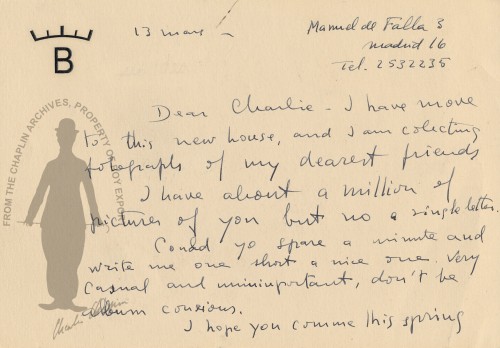 B
13 mars -
Manuel de Falla 3
Madrid 16
Tel. 2532235
Dear Charlie - I have move
to this new house, and I am colecting
fotographs of my dearest friends
I have about a million of
pictures of you but no a single letter.
Could yo spare a minute and
write me one short a nice one. Very
Casual and unimportant, don't be
album consious.
I hope you comme this spring
FROM THE CHAPLIN ARCHIVES, PROPERTY OF ROY EXPORT
Charlie Chaplin